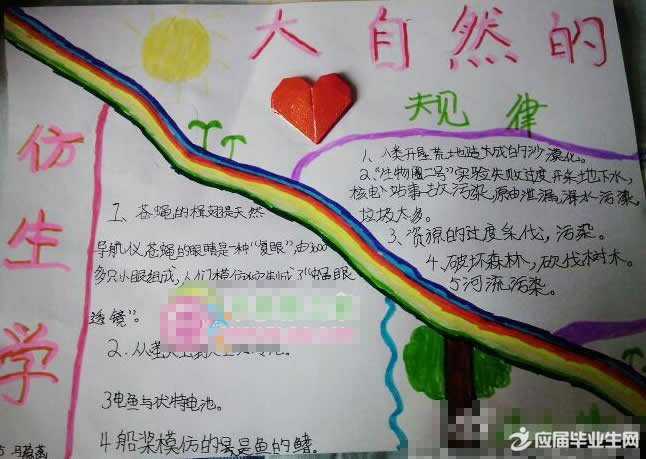 大自然的
规律
仿生学
1、人类开垦荒土地造成的沙漠化。
2、“生物圈二号”实验失败过度开采地下水,
核电站事故污染,原油泄漏,海水污染,
垃圾太多。
3、资源的过度采伐,污染。
4、破坏森林,砍伐树木。
5河流污染。
1、苍蝇的楫翅是天然
导航仪 苍蝇的眼睛是一种“复眼”由3000
多只小眼组成,人们模仿它制成了“蝇眼
透镜”。
2、从萤火
3电鱼与伏特电池。
4船桨模仿的是鱼的鳍。
应届毕业生网